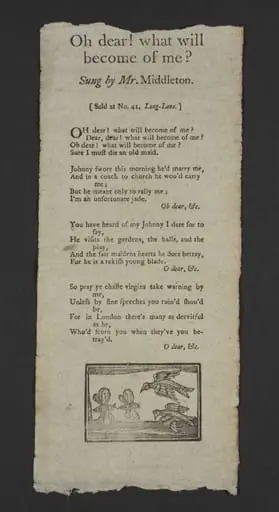 Oh dear! what will
become of me?
Sung by Mr. Middleton.
[ Sold at No. 42, Long-Lane. ]
OH dear! what will become of me?
Dear, dear! what will become of me?
Oh dear! what will become of me?
Sure I muſt die an old maid.
Johnny ſwore this morning he'd marry me,
And in a coach to church he wou'd carry
me;
But he meant only to rally me;
I'm an unfortunate jade.
Oh dear, &c.
You have heard of my Johnny I dare for to
ſay,
He viſits the gardens, the balls, and the
play,
And the fair maidens hearts he does betray,
For he is a rakiſh young blade.
O dear, &c.
So pray ye chaſte virgins take warning by
me,
Unleſs by fine ſpeeches you ruin'd ſhou'd
be,
For in London there's many as deceitful
as he,
Who'd ſcorn you when they've you be-
tray'd.
O dear, &c.